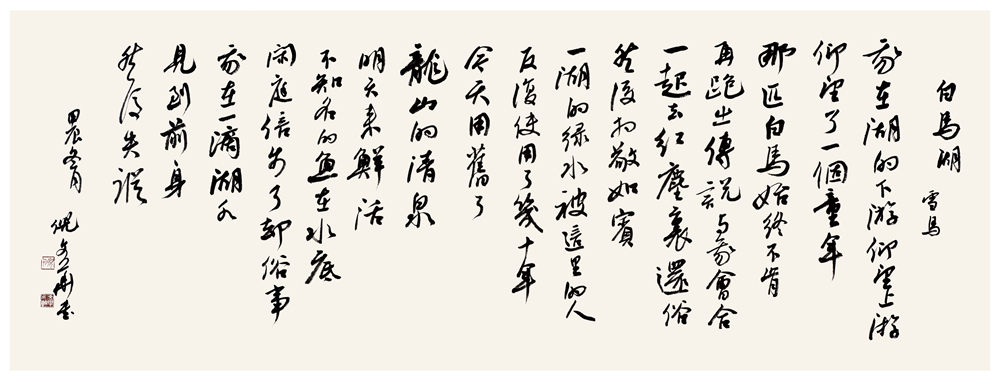 白馬湖
雪馬
我在湖的下游仰望上游
仰望了一個童年
那匹白馬始終不肯
再跑出傳説与我會合
一起去紅塵裏還俗
然後相敬如賓
一湖的綠水被這里的人
反復使用了幾十年
今天用舊了
龍山的清泉
明天来鮮活
不知名的魚在水底
闲庭信步了却俗事
我在一滴湖水
見到前身
然後失蹤
甲辰冬月
倪文華書